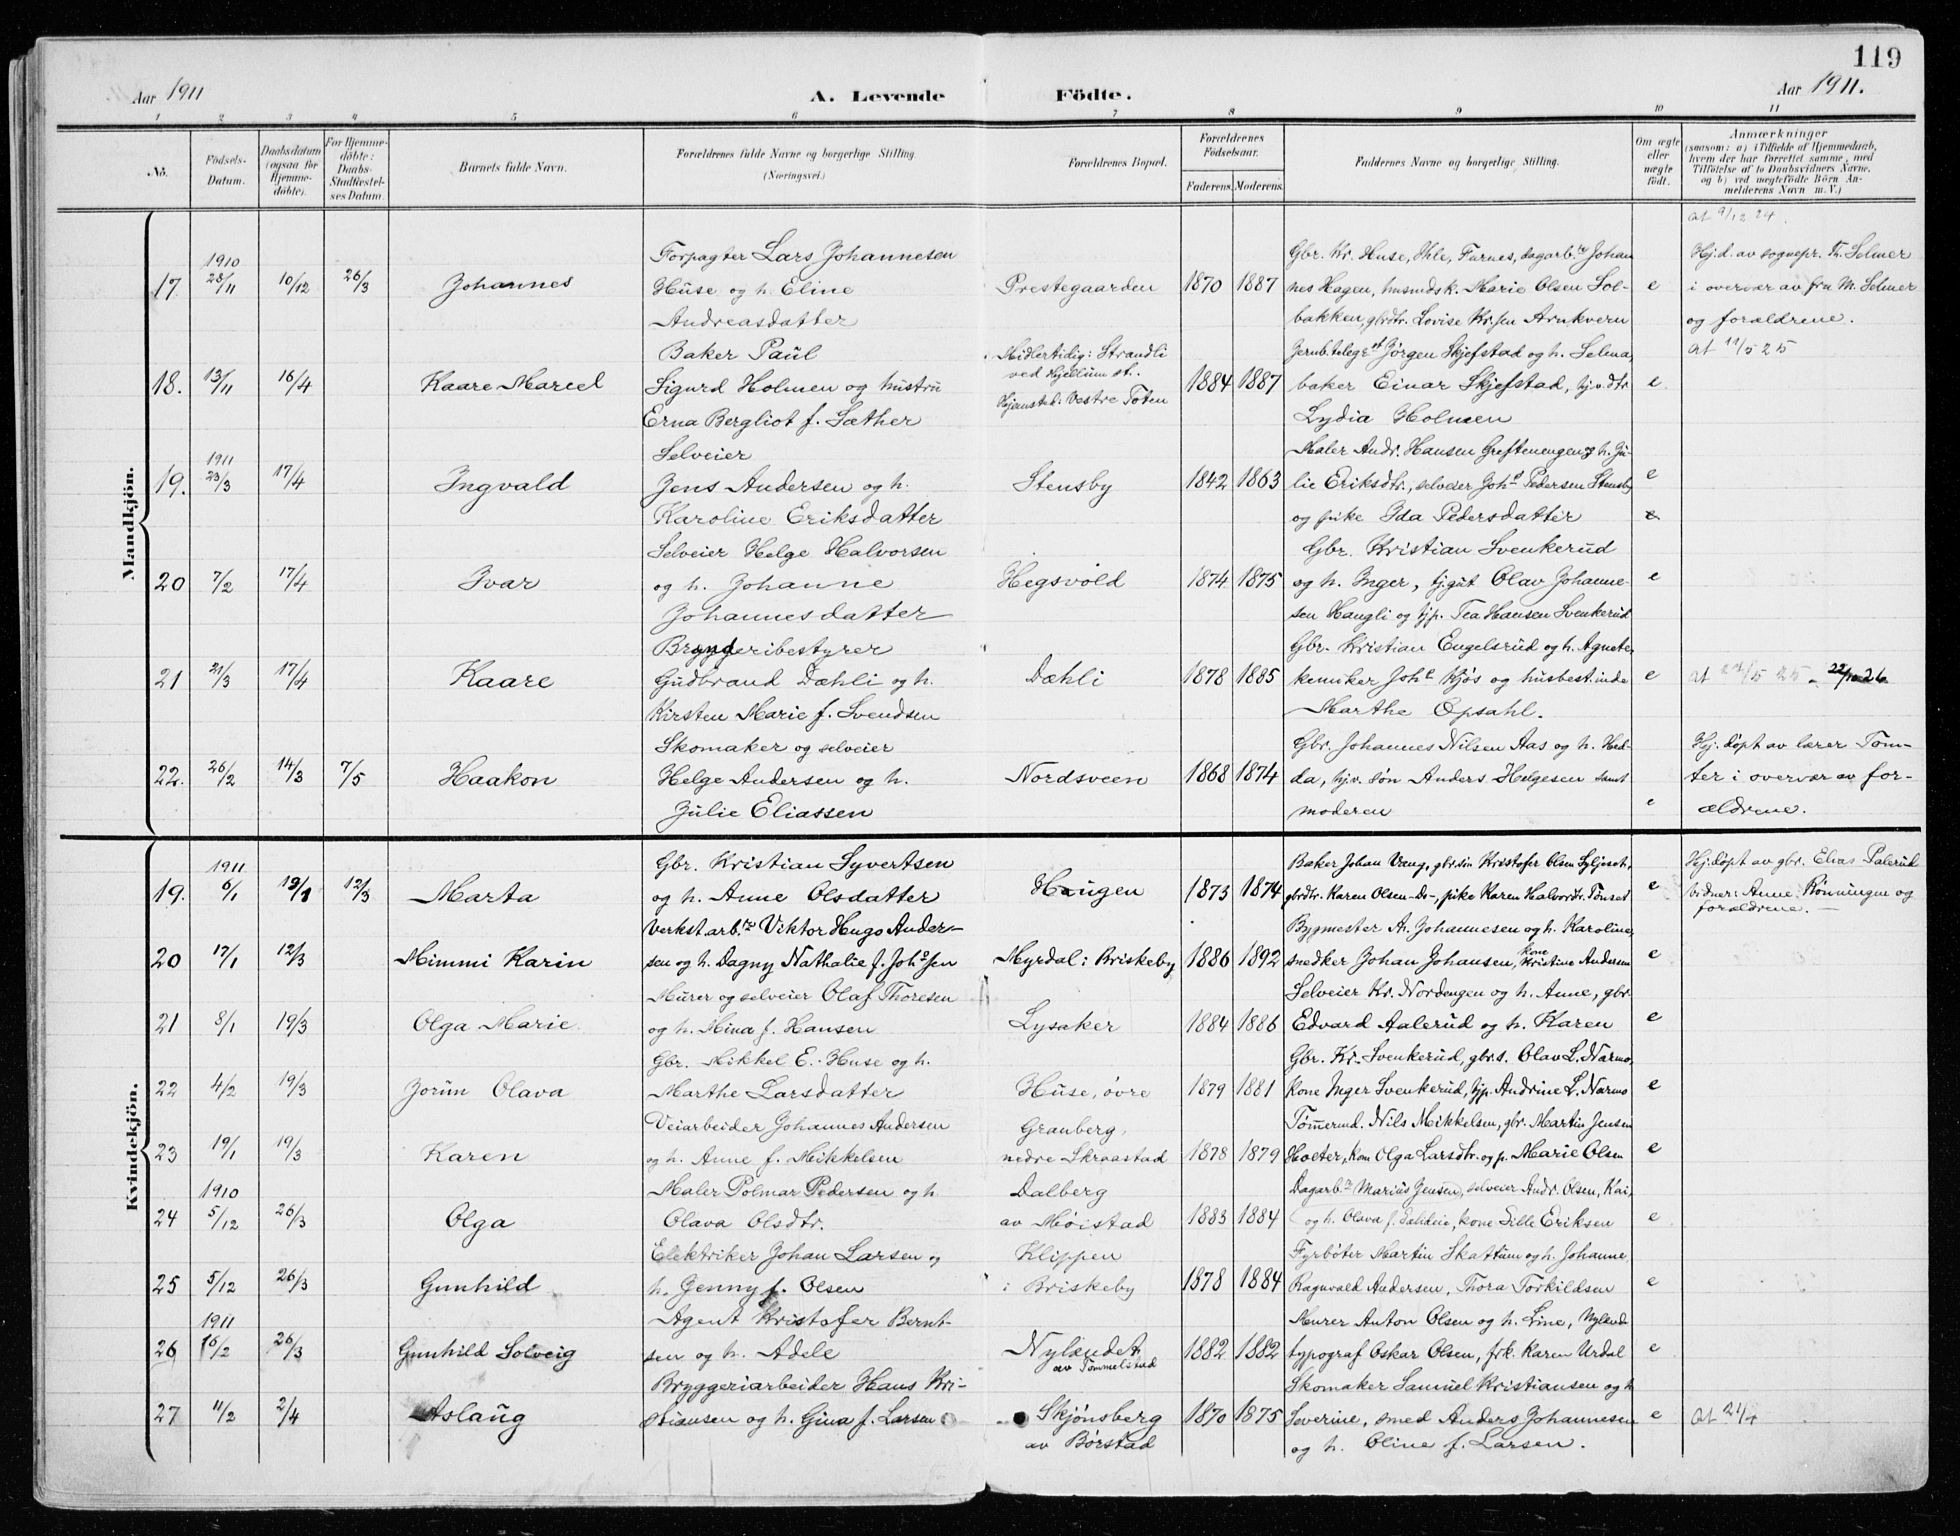 119
Aar 1911
A. Levende Födte.
Aar 1911.
1 2 3 4 5 6 7 8 9 10 11
No.
Födsels-Datum.
Daabsdatum (ogsaa for Hjemmedöbte).
For Hjemmedöbte: Daabs-Stadfæstelses Datum.
Barnets fulde Navn.
Forældrenes fulde Navne og borgerlige Stilling. (Næringsvei.)
Forældrenes Bopæl.
Forældrenes Födselsaar.
Faderens. Moderens.
Faddernes Navne og borgerlige Stilling.
Om ægte eller uægte födt.
Anmærkninger (saasom: a) i Tilfælde af Hjemmedaab, hvem der har forrettet samme, med Tilföielse af to Daabsvidners Navne, og b) ved uægtefödte Börn Anmelderens Navn m. V.)
Mandkjön.
17. 1910 28/11 10/12 26/3 Johannes
Forpagter Lars Johannesen
Huse og h. Eline
Andreasdatter
Prestegaarden 1870 1887
Gbr. Kr. Huse, Ihle, Furnes, dagarb.re Johan
nes Hagen, husmdsk. Marie Olsen Sol-
bakken, gbrdtr. Lovise Kr.sen Arnkvern
e
at 9/12 24.
Hj.d. av sognepr. Th. Selmer
i overvær av fru M. Selmer
og forældrene.
18. 13/11 16/4 Kaare Marcel
Baker Paul
Sigurd Holmen og hustru
Erna Bergliot f. Sæther
Midlertidig: Strandli
ved Hjellum st.
Hjemsted: Vestre Toten
1884 1887
Jernb.teleg.st Jörgen Skjefstad og h. Selma,
baker Einar Skjefstad, hj.v.dtr
Lydia Holmen
e
at 11/5 25
19. 1911 23/3 17/4 Ingvald
Selveier
Jens Andersen og h.
Karoline Eriksdatter
Stensby 1842 1863
Maler Andr. Hansen Greftenengen og h. Ju-
lie Eriksdtr., selveier Joh.s Pedersen Stensby
og pike Ida Pedersdatter
e
20 7/2 17/4 Ivar
Selveier Helge Halvorsen
og h. Johanne
Johannesdatter
Hegsvold 1874 1875
Gbr. Kristian Svenkerud
og h. Inger, tj.gut Olav Johanne-
sen Haugli og tjp. Tea Hansen Svenkerud
e
21 21/3 17/4 Kaare
Bryggeribestyrer
Gudbrand Dæhli og h.
Kirsten Marie f. Svendsen
Dæhli 1878 1885
Gbr. Kristian Engelsrud og h. Agnete,
kemiker Joh.s Kjøs og husbest.inde
Marthe Opsahl.
e
22. 26/2 14/3 7/5 Haakon
Skomaker og selveier
Helge Andersen og h.
Julie Eliassen
Nordsveen 1868 1874
Gbr. Johannes Nilsen Aas og h. Hed-
da, hj.v. søn Anders Helgesen samt
moderen
e
Hj. døpt av lærer Tom-
ter i overvær av for-
ældrene.
Kvindekjön.
19. 1911 6/1 12/3 Marta
Gbr. Kristian Syvertsen
og h. Anne Olsdatter
Haugen 1873 1874
Baker Johan Vang, gbr.søn Kristofer Olsen
gbrdtr. Karen Olsen -do-, pike Karen Halvordtr. Tønset
e
Hj.døpt av gbr. Elias Palerud
vidner: Anne Rønningen og
forældrene.
20 17/1 12/3 Mimmi Karin
Verkst.arb.re Viktor Hugo Ander-
sen og h. Dagny Nathalie f. Joh.sen
Myrdal i Briskeby 1886 1892
Bygmester A. Johannesen og h. Karoline,
snedker Johan Johansen, kone Kristine Andersen
e
21 8/1 19/3 Olga Marie
Murer og selveier Olaf Thoresen
og h. Mina f. Hansen
Lysaker 1884 1886
Selveier Kr. Nordengen og h. Anne, gbr.
Edvard Aalerud og h. Karen
e
22 4/2 19/3 Jorun Olava
Gbr. Mikkel E. Huse og h.
Marthe Larsdatter
Huse, øvre 1879 1881
Gbr. Kr. Svenkerud, gbr.s. Olav L. Narmo,
kone Inger Svenkerud, tjp. Andrine L. Narmo
e
23 19/1 19/3 Karen
Veiarbeider Johannes Andersen
og h. Anne f. Mikkelsen
Granberg,
nedre Skraastad
1878 1879
Tømmermd. Nils Mikkelsen, gbr. Martin Jensen
Hoeter, kone Olga Larsdtr. og p. Marie Olsen
e
24 1910 5/12 26/3 Olga
Maler Polmar Pedersen og h.
Olava Olsdtr.
Dalberg
av Møistad
1883 1884
Dagarb.re Marius Jensen, selveier Andr. Olsen, Kai,
og h. Olava f. kone Sille Eriksen
e
25 5/12 26/3 Gunhild
Elektriker Johan Larsen og
h. Jenny f. Olsen
Klippen
i Briskeby
1878 1884
Fyrbøter Martin Skattum og h. Johanne,
Ragnvald Andersen, Thora Torkildsen
e
26 1911 16/2 26/3 Gunhild Solveig
Agent Kristofer Bernt-
sen og h. Adele
Nylændet
av Tommelstad
1882 1882
Murer Anton Olsen og h. Line, Nylænd
typograf Oskar Olsen, frk. Karen Urdal
e
27 11/2 2/4 Aslaug
Bryggeriarbeider Hans Kri-
stiansen og h. Gina f. Larsen
Skjønsberg
av Børstad
1870 1875
Skomaker Samuel Kristiansen og h
Severine, smed Anders Johannesen
og h. Oline f. Larsen.
e